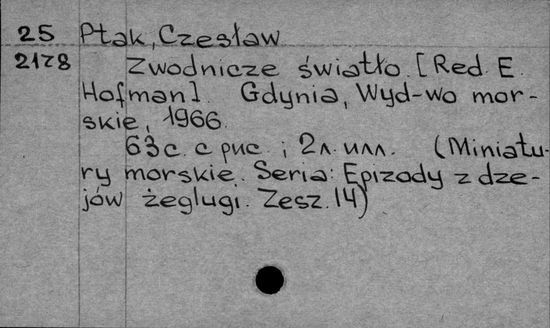 25 Ptak, Czesław
2178 Zwodnicze światło. [Red. E.
Hofman]. Gdynia, Wyd-wo mor-
skie, 1966.
63 с. с рис. i 2 л. илл. (Miniatu-
ry morskie. Seria: Epizody z dze-
jów żeglugi. Zesz. 14)